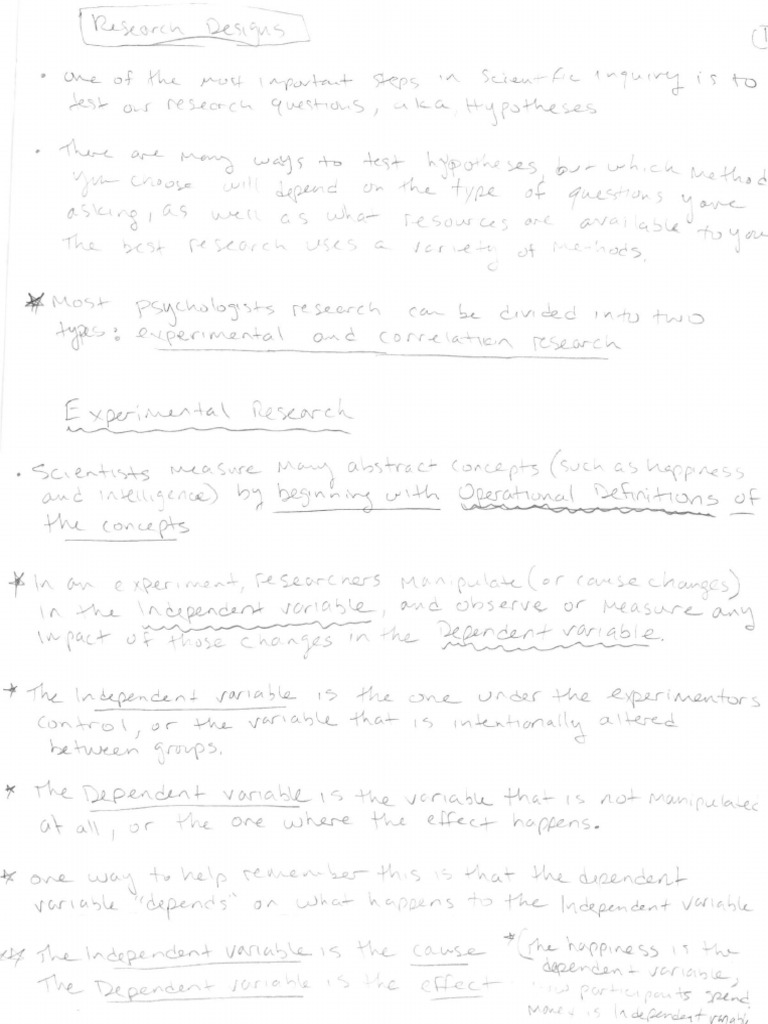 Research Designs
①
• One of the most important steps in scientific inquiry is to
test our research questions, aka, Hypotheses
• There are many ways to test hypotheses, but which method
you choose will depend on the type of questions you are
asking, as well as what resources are available to you
The best research uses a variety of methods.
* Most psychologists research can be divided into two
types: experimental and correlation research
Experimental Research
• Scientists measure many abstract concepts (such as happiness
and intelligence) by beginning with Operational Definitions of
the concepts
* In an experiment, researchers manipulate (or cause changes)
in the Independent variable, and observe or measure any
impact of those changes in the Dependent variable.
* The Independent variable is the one under the experimentors
control, or the variable that is intentionally altered
between groups.
* The Dependent variable is the variable that is not manipulated
at all, or the one where the effect happens.
* one way to help remember this is that the dependent
variable "depends" on what happens to the Independent variable
** The Independent variable is the cause
The Dependent variable is the effect
* (The happiness is the
dependent variable,
participants spend
money is Independent variable